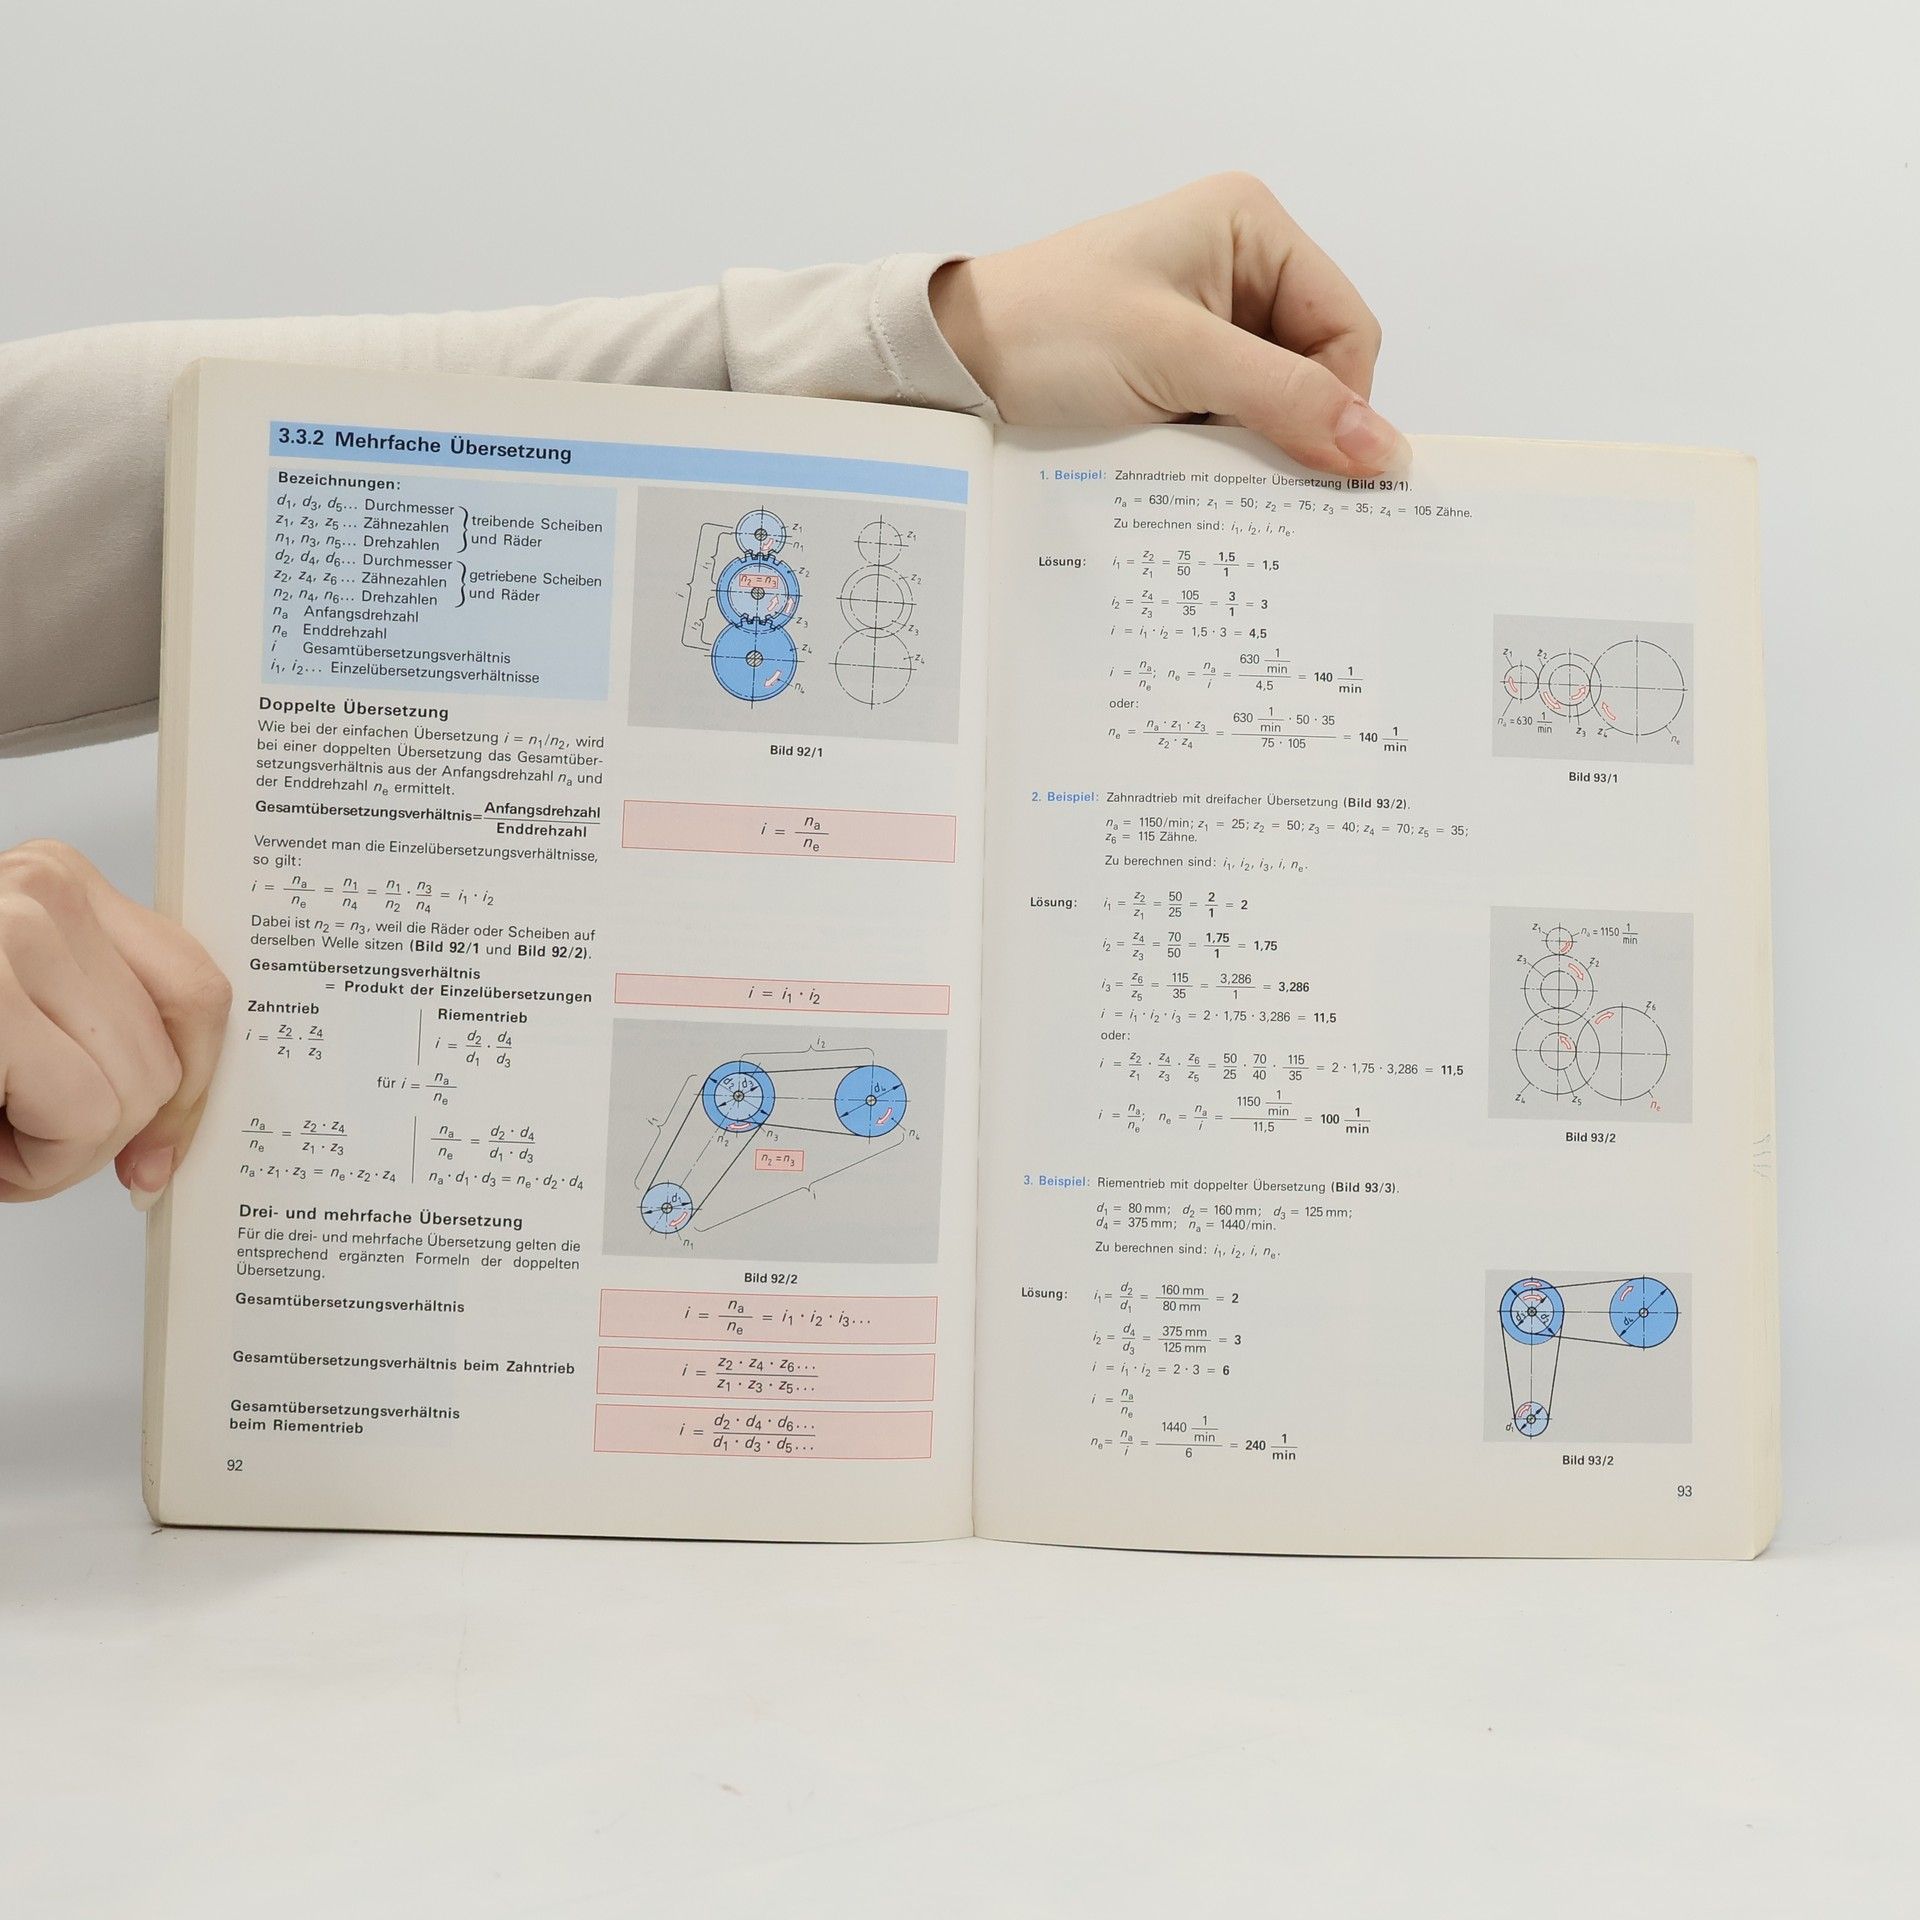 3.3.2 Mehrfache Übersetzung
Bezeichnungen:
d₁, d₃, d₅... Durchmesser
z₁, z₃, z₅... Zähnezahlen
n₁, n₃, n₅... Drehzahlen
treibende Scheiben
und Räder
d₂, d₄, d₆... Durchmesser
z₂, z₄, z₆... Zähnezahlen
n₂, n₄, n₆... Drehzahlen
getriebene Scheiben
und Räder
nₐ Anfangsdrehzahl
nₑ Enddrehzahl
i Gesamtübersetzungsverhältnis
i₁, i₂... Einzelübersetzungsverhältnisse
z₁
n₁
z₂
n₂ = n₃
z₃
z₄
n₄
i₁
i₂
i
z₁
z₂
z₃
z₄
Bild 92/1
Doppelte Übersetzung
Wie bei der einfachen Übersetzung i = n₁/n₂, wird
bei einer doppelten Übersetzung das Gesamtüber-
setzungsverhältnis aus der Anfangsdrehzahl nₐ und
der Enddrehzahl nₑ ermittelt.
Gesamtübersetzungsverhältnis = Anfangsdrehzahl / Enddrehzahl
i = nₐ / nₑ
Verwendet man die Einzelübersetzungsverhältnisse,
so gilt:
i = nₐ / nₑ = n₁ / n₄ = n₁ / n₂ · n₃ / n₄ = i₁ · i₂
Dabei ist n₂ = n₃, weil die Räder oder Scheiben auf
derselben Welle sitzen (Bild 92/1 und Bild 92/2).
Gesamtübersetzungsverhältnis
= Produkt der Einzelübersetzungen
i = i₁ · i₂
Zahntrieb
i = z₂ / z₁ · z₄ / z₃
Riementrieb
i = d₂ / d₁ · d₄ / d₃
für i = nₐ / nₑ
nₐ / nₑ = z₂ · z₄ / z₁ · z₃
nₐ / nₑ = d₂ · d₄ / d₁ · d₃
nₐ · z₁ · z₃ = nₑ · z₂ · z₄
nₐ · d₁ · d₃ = nₑ · d₂ · d₄
i₂
d₂
d₃
d₄
i₁
n₂
n₃
n₄
n₂ = n₃
i
d₁
n₁
Bild 92/2
Drei- und mehrfache Übersetzung
Für die drei- und mehrfache Übersetzung gelten die
entsprechend ergänzten Formeln der doppelten
Übersetzung.
Gesamtübersetzungsverhältnis
i = nₐ / nₑ = i₁ · i₂ · i₃...
Gesamtübersetzungsverhältnis beim Zahntrieb
i = z₂ · z₄ · z₆... / z₁ · z₃ · z₅...
Gesamtübersetzungsverhältnis
beim Riementrieb
i = d₂ · d₄ · d₆... / d₁ · d₃ · d₅...
92
1. Beispiel: Zahnradtrieb mit doppelter Übersetzung (Bild 93/1).
nₐ = 630/min; z₁ = 50; z₂ = 75; z₃ = 35; z₄ = 105 Zähne.
Zu berechnen sind: i₁, i₂, i, nₑ.
Lösung: i₁ = z₂ / z₁ = 75 / 50 = 1,5 / 1 = 1,5
i₂ = z₄ / z₃ = 105 / 35 = 3 / 1 = 3
i = i₁ · i₂ = 1,5 · 3 = 4,5
i = nₐ / nₑ; nₑ = nₐ / i = 630 1/min / 4,5 = 140 1/min
oder:
nₑ = nₐ · z₁ · z₃ / z₂ · z₄ = 630 1/min · 50 · 35 / 75 · 105 = 140 1/min
z₁
z₂
nₐ = 630 1/min
z₃
z₄
nₑ
Bild 93/1
2. Beispiel: Zahnradtrieb mit dreifacher Übersetzung (Bild 93/2).
nₐ = 1150/min; z₁ = 25; z₂ = 50; z₃ = 40; z₄ = 70; z₅ = 35;
z₆ = 115 Zähne.
Zu berechnen sind: i₁, i₂, i₃, i, nₑ.
Lösung: i₁ = z₂ / z₁ = 50 / 25 = 2 / 1 = 2
i₂ = z₄ / z₃ = 70 / 50 = 1,75 / 1 = 1,75
i₃ = z₆ / z₅ = 115 / 35 = 3,286 / 1 = 3,286
i = i₁ · i₂ · i₃ = 2 · 1,75 · 3,286 = 11,5
oder:
i = z₂ / z₁ · z₄ / z₃ · z₆ / z₅ = 50 / 25 · 70 / 40 · 115 / 35 = 2 · 1,75 · 3,286 = 11,5
i = nₐ / nₑ; nₑ = nₐ / i = 1150 1/min / 11,5 = 100 1/min
z₁
nₐ = 1150 1/min
z₃
z₂
z₆
z₄
z₅
nₑ
Bild 93/2
3. Beispiel: Riementrieb mit doppelter Übersetzung (Bild 93/3).
d₁ = 80 mm; d₂ = 160 mm; d₃ = 125 mm;
d₄ = 375 mm; nₐ = 1440/min.
Zu berechnen sind: i₁, i₂, i, nₑ.
Lösung: i₁ = d₂ / d₁ = 160 mm / 80 mm = 2
i₂ = d₄ / d₃ = 375 mm / 125 mm = 3
i = i₁ · i₂ = 2 · 3 = 6
i = nₐ / nₑ
nₑ = nₐ / i = 1440 1/min / 6 = 240 1/min
d₃
d₂
d₄
d₁
Bild 93/2
93